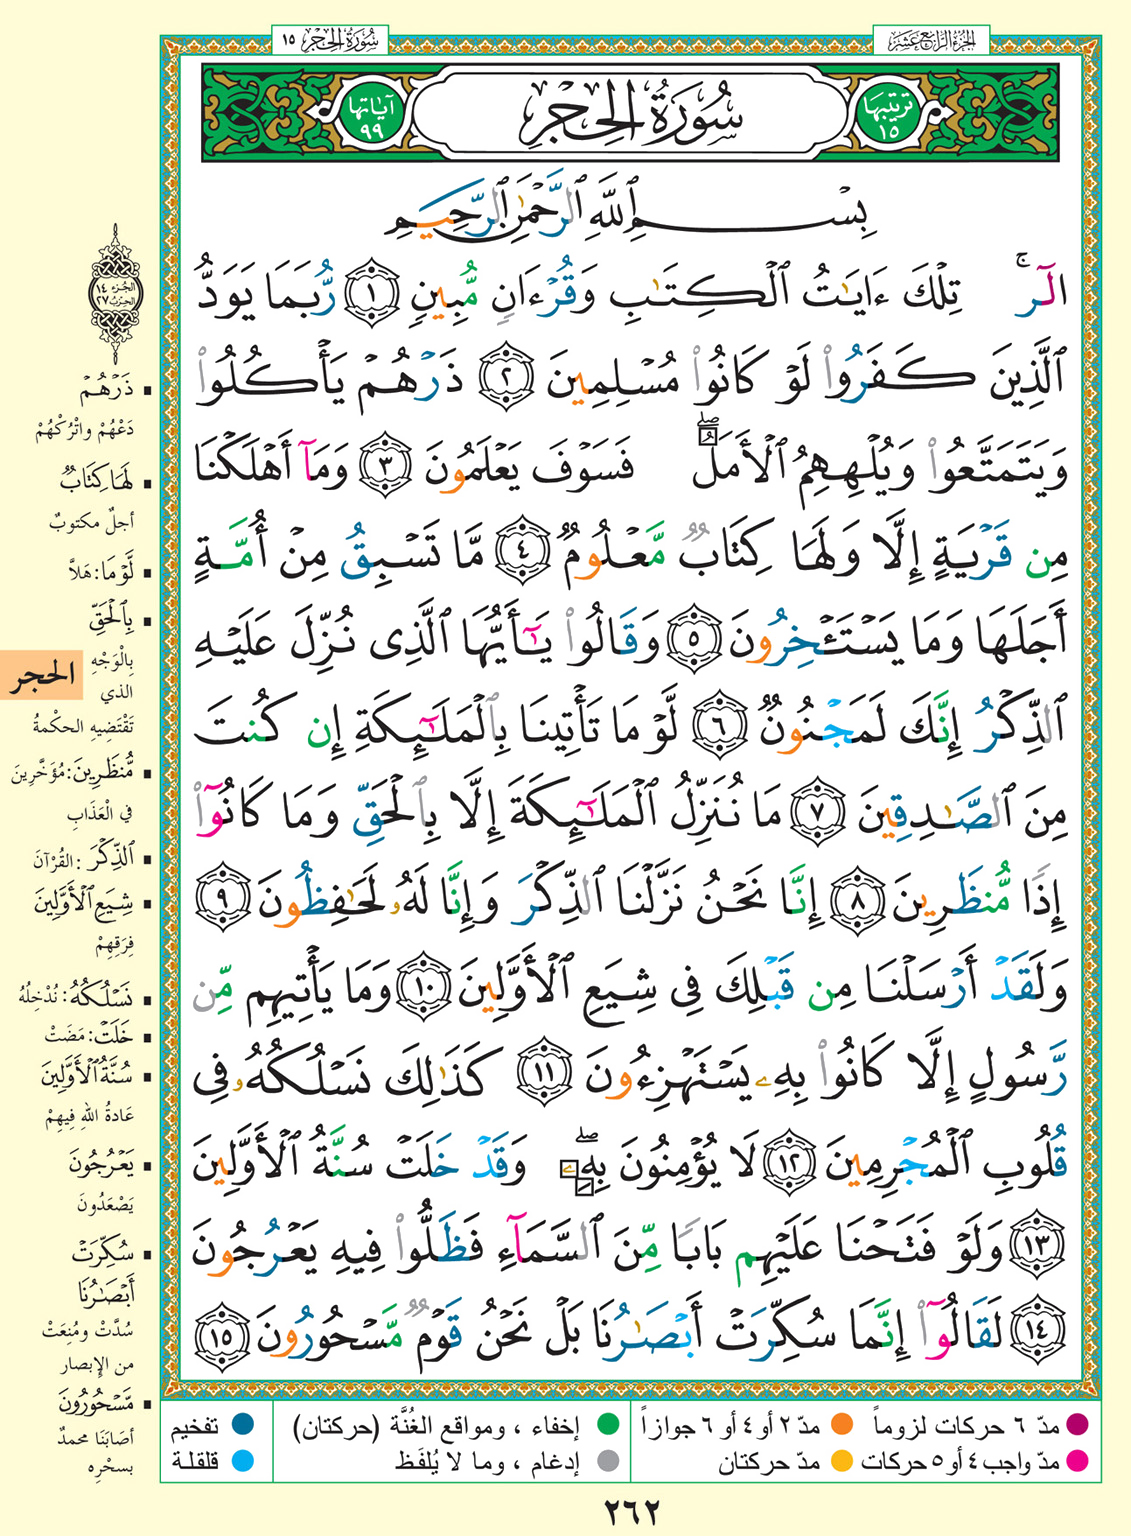 الجزء الرابع عشر
سُورَةُ الحِجْرِ ١٥
ترتيبها ١٥
سُورَةُ الحِجْرِ
آياتها ٩٩
بِسْمِ ٱللَّهِ ٱلرَّحْمَٰنِ ٱلرَّحِيمِ
الٓرۚ تِلْكَ ءَايَٰتُ ٱلْكِتَٰبِ وَقُرْءَانٍ مُّبِينٍ ١ رُّبَمَا يَوَدُّ
ٱلَّذِينَ كَفَرُوا۟ لَوْ كَانُوا۟ مُسْلِمِينَ ٢ ذَرْهُمْ يَأْكُلُوا۟
وَيَتَمَتَّعُوا۟ وَيُلْهِهِمُ ٱلْأَمَلُۖ فَسَوْفَ يَعْلَمُونَ ٣ وَمَآ أَهْلَكْنَا
مِن قَرْيَةٍ إِلَّا وَلَهَا كِتَابٌ مَّعْلُومٌ ٤ مَّا تَسْبِقُ مِنْ أُمَّةٍ
أَجَلَهَا وَمَا يَسْتَـْٔخِرُونَ ٥ وَقَالُوا۟ يَٰٓأَيُّهَا ٱلَّذِى نُزِّلَ عَلَيْهِ
ٱلذِّكْرُ إِنَّكَ لَمَجْنُونٌ ٦ لَّوْ مَا تَأْتِينَا بِٱلْمَلَٰٓئِكَةِ إِن كُنتَ
مِنَ ٱلصَّٰدِقِينَ ٧ مَا نُنَزِّلُ ٱلْمَلَٰٓئِكَةَ إِلَّا بِٱلْحَقِّ وَمَا كَانُوٓا۟
إِذًا مُّنظَرِينَ ٨ إِنَّا نَحْنُ نَزَّلْنَا ٱلذِّكْرَ وَإِنَّا لَهُۥ لَحَٰفِظُونَ ٩
وَلَقَدْ أَرْسَلْنَا مِن قَبْلِكَ فِى شِيَعِ ٱلْأَوَّلِينَ ١٠ وَمَا يَأْتِيهِم مِّن
رَّسُولٍ إِلَّا كَانُوا۟ بِهِۦ يَسْتَهْزِءُونَ ١١ كَذَٰلِكَ نَسْلُكُهُۥ فِى
قُلُوبِ ٱلْمُجْرِمِينَ ١٢ لَا يُؤْمِنُونَ بِهِۦۖ وَقَدْ خَلَتْ سُنَّةُ ٱلْأَوَّلِينَ
١٣ وَلَوْ فَتَحْنَا عَلَيْهِم بَابًا مِّنَ ٱلسَّمَآءِ فَظَلُّوا۟ فِيهِ يَعْرُجُونَ
١٤ لَقَالُوٓا۟ إِنَّمَا سُكِّرَتْ أَبْصَٰرُنَا بَلْ نَحْنُ قَوْمٌ مَّسْحُورُونَ ١٥
الجزء ١٤
الحزب ٢٧
ذَرْهُمْ
دَعْهُمْ واتْرُكْهُمْ
لَهَا كِتَابٌ
أجلٌ مكتوبٌ
لَّوْ مَا: هَلاَّ
بِٱلْحَقِّ
بِالْوَجْهِ
الذي
تَقْتَضِيهِ الحكْمةُ
الحجر
مُّنظَرِينَ: مُؤَخَّرِينَ
في الْعَذَابِ
ٱلذِّكْرَ: القُرْآنَ
شِيَعِ ٱلْأَوَّلِينَ
فِرَقِهِمْ
نَسْلُكُهُ: نُدْخِلُهُ
خَلَتْ: مَضَتْ
سُنَّةُ ٱلْأَوَّلِينَ
عَادةُ اللهِ فِيهِمْ
يَعْرُجُونَ
يَصْعَدُونَ
سُكِّرَتْ
أَبْصَٰرُنَا
سُدَّتْ ومُنِعَتْ
من الإبصار
مَّسْحُورُونَ
أصَابَنَا محمدٌ
بسحْرِه
مدّ ٦ حركات لزوماً
مدّ ٢ أو ٤ أو ٦ جوازاً
إخفاء ، ومواقع الغُنَّة (حركتان)
تفخيم
مدّ واجب ٤ أو ٥ حركات
مدّ حركتان
إدغام ، وما لا يُلفَظ
قلقلة
٢٦٢